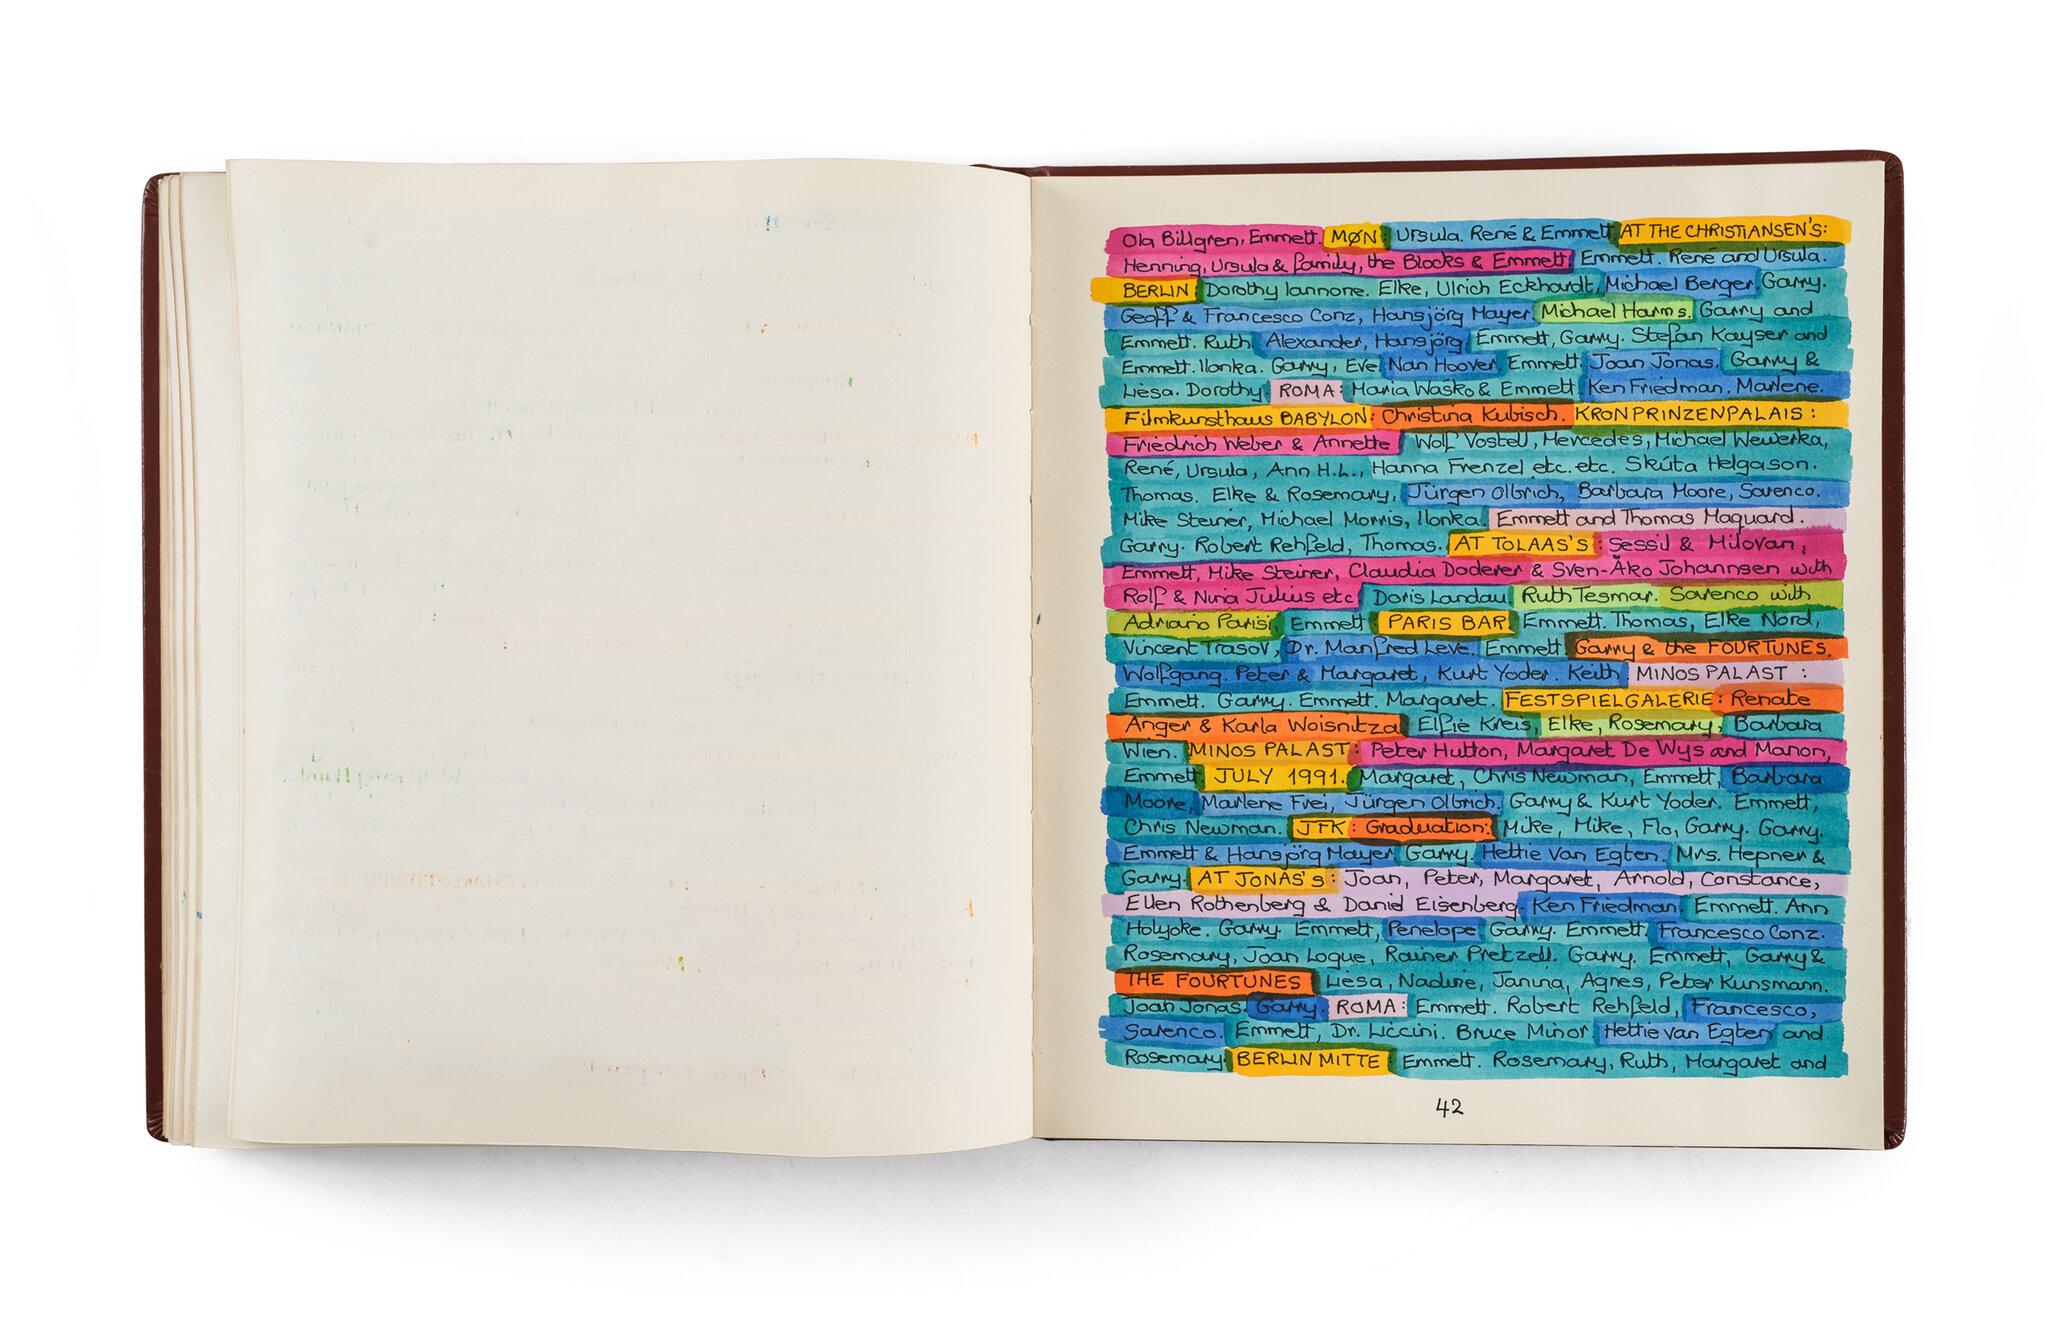 Ola Billgren, Emmett. MØN: Ursula. René & Emmett AT THE CHRISTIANSEN'S:
Henning, Ursula & family, the Blocks & Emmett Emmett. René and Ursula.
BERLIN Dorothy Iannone. Elke, Ulrich Eckhardt, Michael Berger. Garry.
Geoff & Francesco Conz, Hansjörg Mayer Michael Harms. Garry and
Emmett. Ruth. Alexander, Hansjörg. Emmett, Garry. Stefan Kayser and
Emmett. Ilonka. Garry, Eve. Nan Hoover. Emmett. Joan Jonas. Garry &
Liesa. Dorothy. ROMA: Maria Waśko & Emmett Ken Friedman. Marlene.
Filmkunsthaus BABYLON: Christina Kubisch. KRONPRINZENPALAIS:
Friedrich Weber & Annette Wolf Vostell, Mercedes, Michael Wewerka,
René, Ursula, Ann H.L., Hanna Frenzel etc. etc. Skúta Helgason.
Thomas. Elke & Rosemary, Jürgen Olbrich, Barbara Moore, Sarenco.
Mike Steiner, Michael Morris, Ilonka. Emmett and Thomas Maquard.
Garry. Robert Rehfeld, Thomas. AT TOLAAS's: Sessil & Milovan,
Emmett, Mike Steiner, Claudia Doderer & Sven-Åko Johannsen with
Rolf & Nina Julius etc Doris Landau Ruth Tesmar. Sarenco with
Adriano Parisi, Emmett PARIS BAR Emmett. Thomas, Elke Nord,
Vincent Trasov, Dr. Manfred Leve. Emmett Garry & the FOURTUNES.
Wolfgang. Peter & Margaret, Kurt Yoder. Keith MINOS PALAST:
Emmett. Garry. Emmett. Margaret. FESTSPIELGALERIE: Renate
Anger & Karla Woisnitza Elfie Kreis, Elke, Rosemary, Barbara
Wien. MINOS PALAST: Peter Hutton, Margaret De Wys and Manon,
Emmett. JULY 1991. Margaret, Chris Newman, Emmett, Barbara
Moore, Marlene Frei, Jürgen Olbrich. Garry & Kurt Yoder. Emmett,
Chris Newman. JFK: Graduation: Mike, Mike, Flo, Garry. Garry.
Emmett & Hansjörg Mayer Garry. Hettie van Egten. Mrs. Hepner &
Garry. AT JONAS's: Joan, Peter, Margaret, Arnold, Constance,
Ellen Rothenberg & Daniel Eisenberg. Ken Friedman. Emmett. Ann
Holyoke. Garry. Emmett, Penelope. Garry. Emmett. Francesco Conz.
Rosemary, Joan Logue, Rainer Pretzell. Garry. Emmett, Garry &
THE FOURTUNES Liesa, Nadine, Janina, Agnes, Peter Kunsmann.
Joan Jonas. Garry. ROMA: Emmett. Robert Rehfeld, Francesco,
Sarenco. Emmett, Dr. Liccini. Bruce Minor Hettie van Egten and
Rosemary. BERLIN MITTE Emmett. Rosemary, Ruth, Margaret and
42